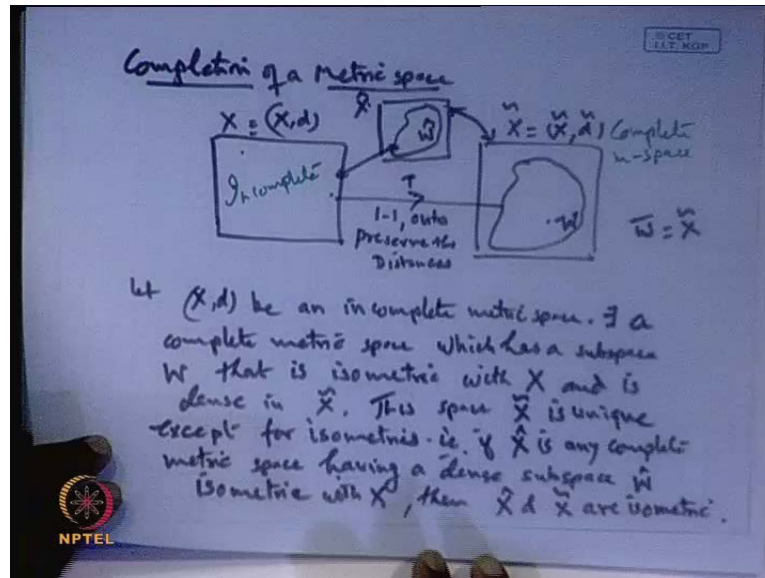 © CET
I.I.T. KGP
Completion of a Metric space
X = (X,d)
X̂
Ŵ
X̃ = (X̃, d̃) Complete
m-space
Incomplete
T
1-1, onto
Preserve the
Distances
W
W̄ = X̃
Let (X,d) be an incomplete metric space. ∃ a
complete metric space which has a subspace
W that is isometric with X and is
dense in X̃. This space X̃ is unique
except for isometries. i.e. if X̂ is any complete
metric space having a dense subspace Ŵ
isometric with X, then X̂ & X̃ are isometric.
NPTEL